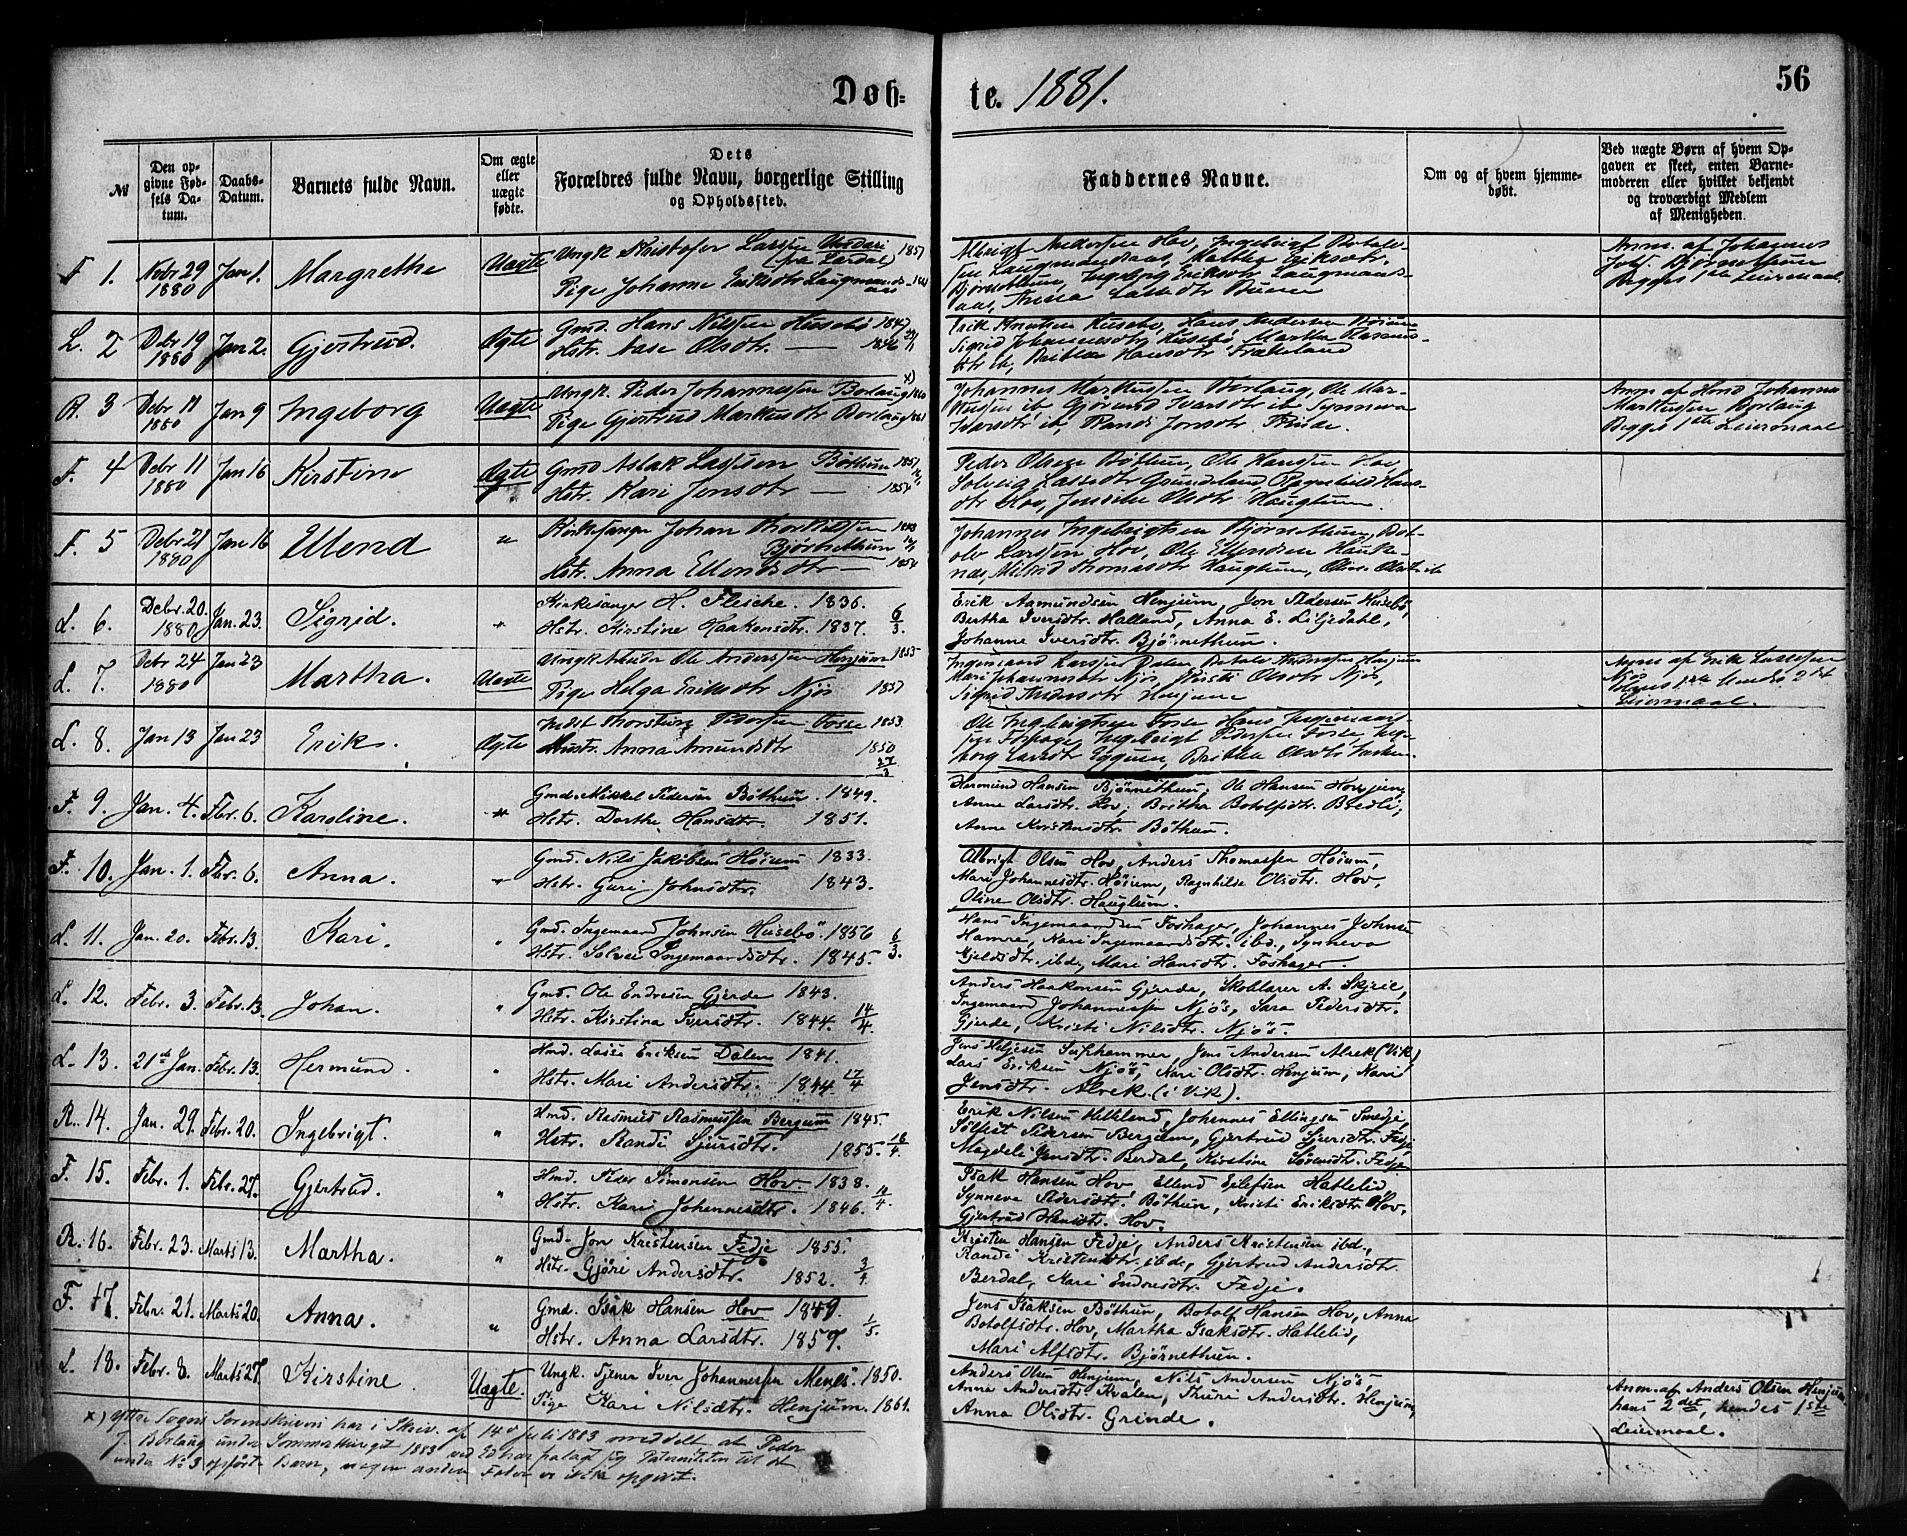 56
Døb-
te. 1881.
№
Den opgivne Fødsels Datum.
Daabs-Datum.
Barnets fulde Navn.
Om ægte eller uægte fødte.
Dets Forældres fulde Navn, borgerlige Stilling og Opholdssted.
Faddernes Navne.
Om og af hvem hjemmedøbt.
Ved uægte Børn af hvem Opgaven er skeet, enten Barnemoderen eller hvilket bekjendt og troværdigt Medlem af Menigheden.
F. 1. Novbr 29 1880 Jan 1. Margrethe Uægte
Ungk Kristofer Larssen (fra Lærdal) 1857
Pige Johanne Eriksdtr Laugmands-
Anm. af Johannes
Joh. Bjørnethun
Begges 1ste Leiermaal.
L. 2 Debr 19 1880 Jan 2. Gjertrud. Ægte
Gmd. Hans Nilssen Husebø 1847
Hstr. Aase Olsdtr. — 1846
Erik Knutsen Husebø, Hans Andersen
Sigrid Johannesdtr Husebø, Martha
R. 3 Debr 11 1880 Jan 9 Ingeborg Uægte
Ungk. Peder Johannessen Borlaug x)
Pige Gjertrud Markusdtr Borlaug
Johannes Markussen Borlaug, Ole Mar-
kussen ib Gjörond Ivarsdtr ib Synneva
Ivarsdtr ib, Randi Jonsdtr
Anm. af Johannes
Markussen Borlaug
Begges 1ste Leiermaal
F. 4 Debr 11 1880 Jan 16 Kirstine Ægte
Gmd Aslak Lassesen Bøthun 1851
Hstr. Kari Jensdtr — 1854
Peder Olsen Bøthun, Ole Hanssen Hov,
Solveig Lassedtr Grindeland Ragnhild Hans-
dtr Hov, Jensine Olsdtr Hauglum.
F. 5 Debr 21 1880 Jan 16 Ellend "
Kirkesanger Johan
Bjørnethun
Hstr. Anna Ellendsdtr — 1854
Johannes Ingebrigtsen Bjørnethun, Bot-
olv Larssen Hov, Ole Ellendsen
Thomasdtr Hauglum, Oline Olsdtr ib
L. 6. Debr. 20. 1880 Jan. 23. Sigrid. "
Kirkesanger H. Flesche. 1836.
Hstr. Kirstine Haakensdtr. 1837. 6/3.
Erik Aamundsen Henjum, Jon Pedersen Husebø,
Bertha Iversdtr. Halland, Anna E. Liljedahl,
Johanne Iversdtr. Bjørnethun.
L. 7. Debr 24 1880 Jan 23 Martha. Uægte
Ungk Ole Anderssen Henjum 1853
Pige Helga Eriksdtr Njøs 1857
Ingemaard Larssen Dalen Botolv Thomassen Henjum
Mari Johannesdtr Njøs, Kristi Olsdtr Njøs,
Sigrid Andersdtr Henjum
Anm af Erik Lassesen
Njøs
Leiermaal.
L. 8. Jan 13 Jan 23 Erik. Ægte
Pedersen Vosse 1853.
Hustr. Anna Amundsdtr 1850
Ole Ingebrigtsen Vosse Hans Ingemaard-
sen Foshage, Ingebrigt Pedersen Vosse, Inge-
borg Larsdtr Eggum, Brithe Olsdtr
F. 9. Jan. 4. Fbr. 6. Karoline. "
Gmd. Mikkel Pedersen Bøthun. 1849.
Hstr. Dorthe Hansdtr. 1851.
Hermund Hansen Bjørnethun, Ole Hansen Hov jung
Anne Larsdtr. Hov, Britha Botolfsdtr. Bredli,
Anne Kristensdtr. Bøthun.
F. 10. Jan. 1. Fbr. 6. Anna. "
Gmd. Nils Jakobsen Høium 1833.
Hstr. Guri Johnsdtr. 1843.
Albrigt Olsen Hov, Anders Thomassen Høium,
Mari Johannesdtr. Høium, Ragnhilde Olsdtr. Hov,
Oline Olsdtr. Hauglum.
L. 11. Jan. 20. Febr. 13. Kari. "
Gmd. Ingemaard Johnsen Husebö. 1856 6/3.
Hstr. Solvei Ingemaardsdtr. 1845.
Hans Ingemaardsen Foshager, Johannes Johnsen
Hamre, Kari Ingemaardsdtr. ibd., Synneva
Gjeldsdtr. ibd., Mari Hansdtr. Foshager.
L. 12. Febr. 3. Febr. 13. Johan. "
Gmd. Ole Endresen Gjerde 1843.
Hstr. Kirstina Iversdtr. 1844. 14/4.
Anders Haakonsen Gjerde, Skolelærer A. Skjeie,
Ingemaard Johannessen Njøs, Sara Pedersdtr.
Gjerde, Kristi Nilsdtr. Njøs.
L. 13. 21st Jan. Febr. 13. Hermund. "
Hmd. Lasse Eriksen Dalen 1841.
Hstr. Mari Andersdtr. 1844. 17/4
Jens Andersen Alrek (Vik)
Lars Eriksen Njøs, Kari Olsdtr. Henjum, Kari
Jensdtr. Alrek. (i Vik).
R. 14. Jan. 29. Febr. 20. Ingebrigt. "
Hmd. Rasmus Rasmussen Bergum 1845.
Hstr. Randi Sjursdtr. 1855. 18/4
Erik Nilsen Helleland, Johannes Ellingsen Smedje,
Sølfest Pedersen Bergum, Gjertrud Sjursdtr. Fedje,
Magdeli Jensdtr. Berdal, Kirstine Sørensdtr. Fedje
F. 15. Febr. 1. Febr. 27. Gjertrud. "
Hmd. Peder Simonsen Hov. 1838.
Hstr. Kari Johannesdtr. 1846.
Isak Hansen Hov Ellend Eilefsen Hattelid
Synneva Pedersdtr. Bøthun, Kristi Eriksdtr. Hov,
Gjertrud Hansdtr. Hov.
R. 16. Febr. 23. Marts 13. Martha. "
Gmd. Jon Kristensen Fedje 1855.
Hstr. Gjøri Andersdtr. 1852. 3/4.
Kristen Hansen Fedje, Anders Kristensen ibd.,
Randi Kristensdtr. ibd., Gjertrud Andersdtr.
Berdal, Kari Endresdtr. Fedje.
F. 17. Febr. 21. Marts 20. Anna. "
Gmd. Isak Hansen Hov 1849.
Hstr. Anna Larsdtr. 1857. 1/5.
Jens Isaksen Bøthun, Botolf Hansen Hov, Anna
Botolfsdtr. Hov, Martha Isaksdtr. Hattelid,
Mari Alfsdtr. Bjørnethun.
L. 18. Febr. 8. Marts 27. Kirstine. Uægte.
Ungk. Tjener Iver Johannessen Menes. 1850.
Pige Kari Nilsdtr. Henjum. 1861.
Anders Olsen Henjum, Nils Andersen Njøs
Anna Andersdtr. Kvalen, Thuri Andersdtr. Henjum,
Anna Olsdtr. Grinde.
Anm. af Anders Olsen Henjum
hans 2det, hendes 1ste
Leiermaal.
x) efter Sogns Sorenskriveri har i Skriv. af 14de Juli 1883 meddelt at Peder
J. Borlaug under Sommerthinget 1883 ved Ed har paataget sig Paterniteten til det
under No 3 opførte Barn, nogen anden Fader er ikke opgivet.